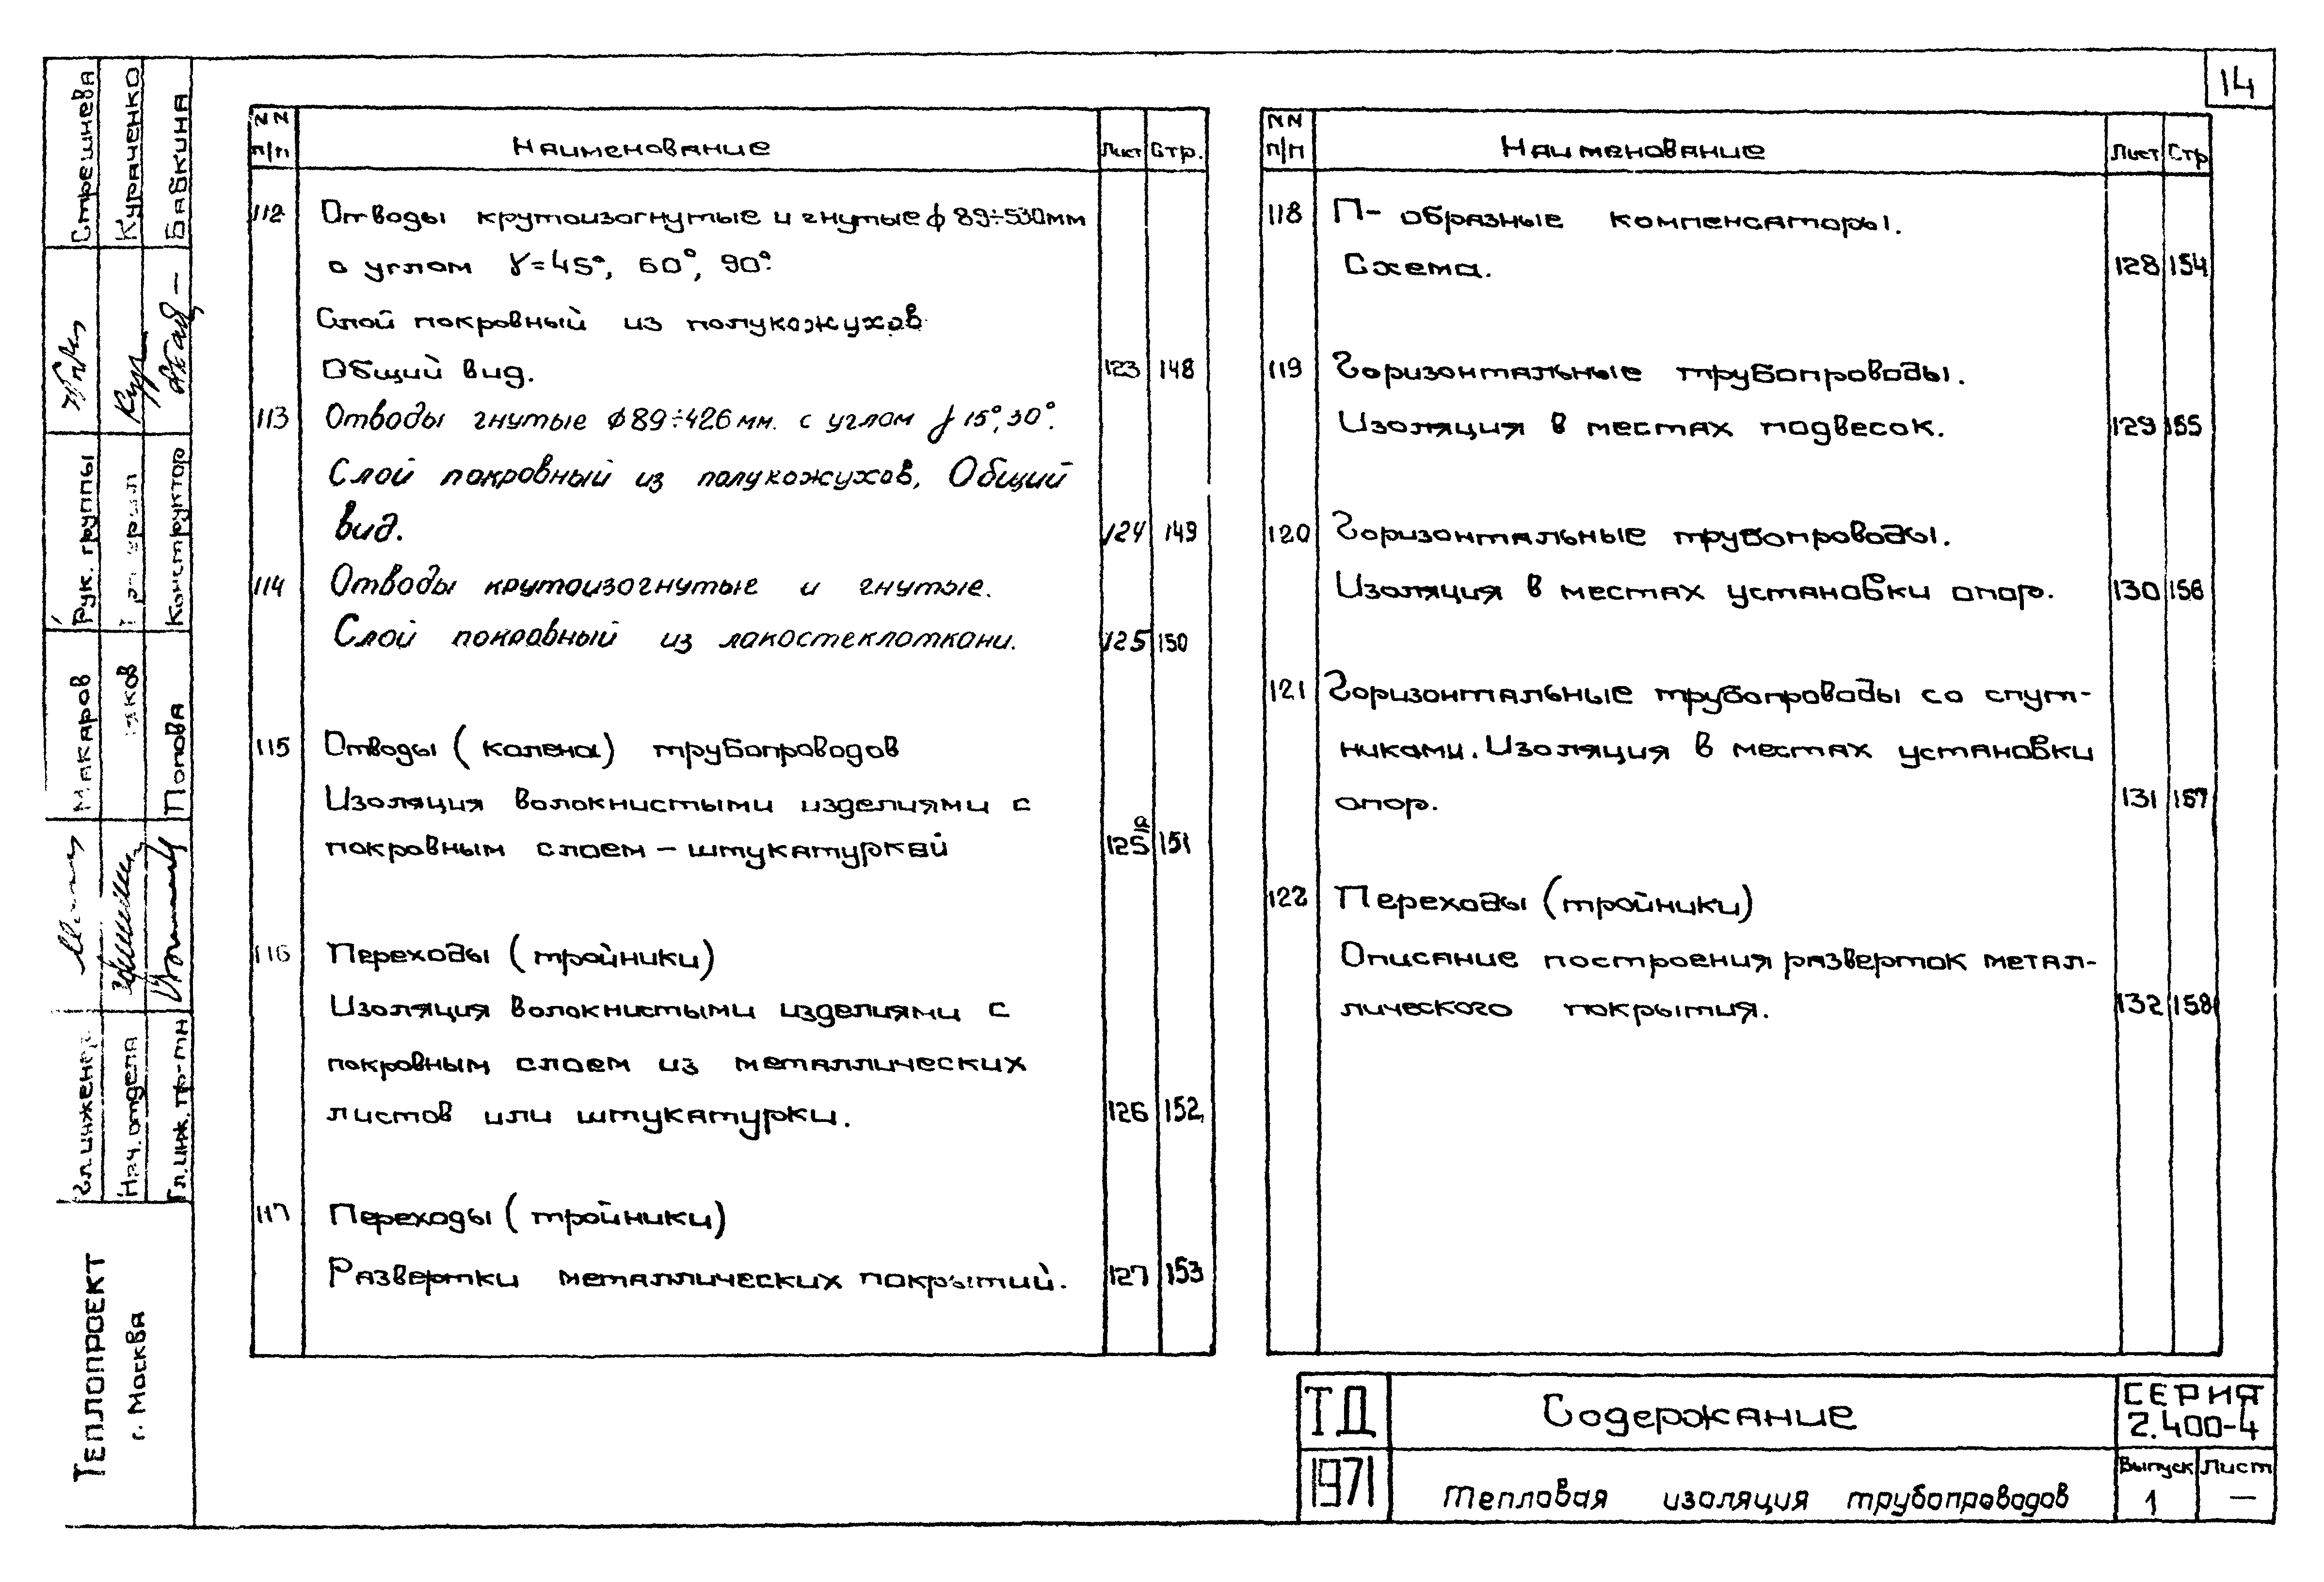 14
NN п/п Наименование Лист Стр.
112 Отводы крутоизогнутые и гнутые ϕ 89÷530мм
с углом γ=45°, 60°, 90°.
Слой покровный из полукожухов
Общий вид. 123 148
113 Отводы гнутые ϕ89÷426мм. с углом γ 15°, 30°.
Слой покровный из полукожухов, Общий
вид. 124 149
114 Отводы крутоизогнутые и гнутые.
Слой покровный из лакостеклоткани. 125 150
115 Отводы (колена) трубопроводов
Изоляция волокнистыми изделиями с
покровным слоем – штукатуркой 125а 151
116 Переходы (тройники)
Изоляция волокнистыми изделиями с
покровным слоем из металлических
листов или штукатурки. 126 152
117 Переходы (тройники)
Развертки металлических покрытий. 127 153
NN п/п Наименование Лист Стр
118 П- образные компенсаторы.
Схема. 128 154
119 Горизонтальные трубопроводы.
Изоляция в местах подвесок. 129 155
120 Горизонтальные трубопроводы.
Изоляция в местах установки опор. 130 156
121 Горизонтальные трубопроводы со спут-
никами. Изоляция в местах установки
опор. 131 157
122 Переходы (тройники)
Описание построения разверток метал-
лического покрытия. 132 158
ТД Содержание СЕРИЯ 2.400-4
1971 Тепловая изоляция трубопроводов Выпуск 1 Лист —
Гл.инженер Макаров Рук. группы Стрешнева
Нач. отдела Кураченко
Гл.инж. пр-та Попова Конструктор Бабкина
ТЕПЛОПРОЕКТ
г. Москва